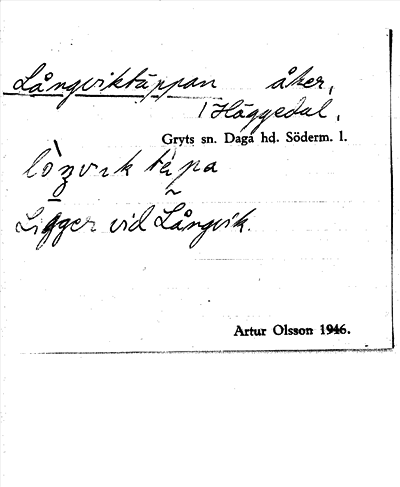 Långviktäppan åker,
/ Häggedal,
Gryts sn. Daga hd. Söderm. l.
Ligger vid Långvik.
Artur Olsson 1946.